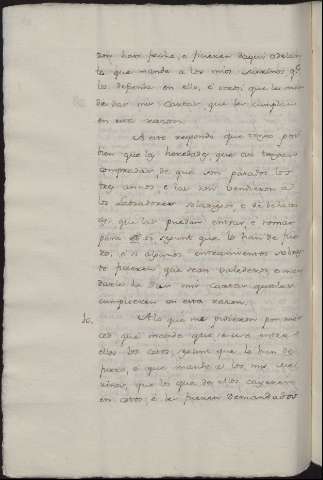 zon han fecho, o ficieren daqui adelan
te que mande a los mios merinos q̃
los defienda en ello, e otrosi que les man
de dar mis cartas que les cumplan
en esta razon.
A esto respondo que tengo por
bien que las heredades que asi tengan
compradas de que son pasados los
tres annos, e las non vendieron a
los labradores
que las puedan entrar e tomar
para si segunt que lo han de fue
ro, e si algunos
ficieren que sean valederos, e man
darles he dar mis cartas quales
cumplieren en esta razon.
A lo que me pidieron por mer
ced que mande que
ellos los cotos, segunt que lo han de
fuero, e que mande a los mis me
rinos, que los que de ellos cayeren
en cotos, e les fueren demandados